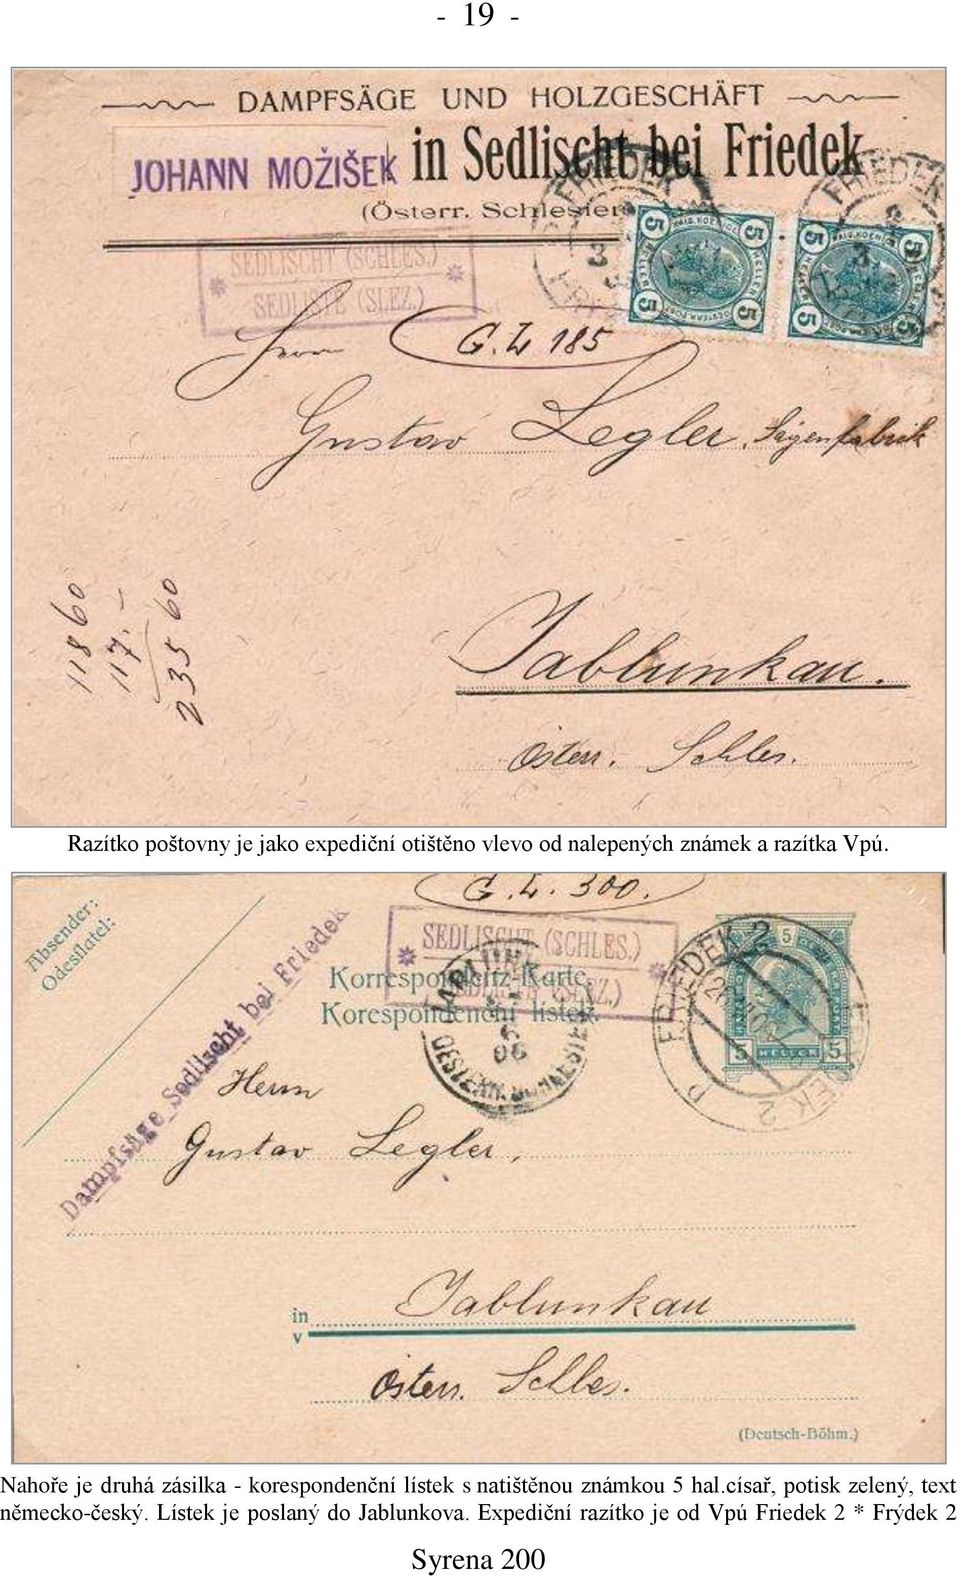 - 19 -
DAMPFSÄGE UND HOLZGESCHÄFT
JOHANN MOŽIŠEK in Sedlischt bei Friedek
(Österr. Schlesien
FRIEDEK
FRIEDEK
5 5 5 5
5 5 5 5
SEDLISCHT (SCHLES.)
SEDLIŠTĚ (SLEZ.)
Herrn G.Z 185
Gustav Legler,
11860
117.-
23560
Jablunkau.
Österr. Schles.
Razítko poštovny je jako expediční otištěno vlevo od nalepených známek a razítka Vpú.
G.Z. 300.
Absender:
Odesílatel:
SEDLISCHT (SCHLES.)
Dampfsäge Sedlischt bei Friedek
Korrespondenz-Karte.
Korespondenční lístek.
FRIEDEK 2
5 HELLER 5
Herrn
Gustav Legler,
in Jablunkau
v
Österr. Schles.
(Deutsch-Böhm.)
Nahoře je druhá zásilka - korespondenční lístek s natištěnou známkou 5 hal.císař, potisk zelený, text
německo-český. Lístek je poslaný do Jablunkova. Expediční razítko je od Vpú Friedek 2 * Frýdek 2
Syrena 200